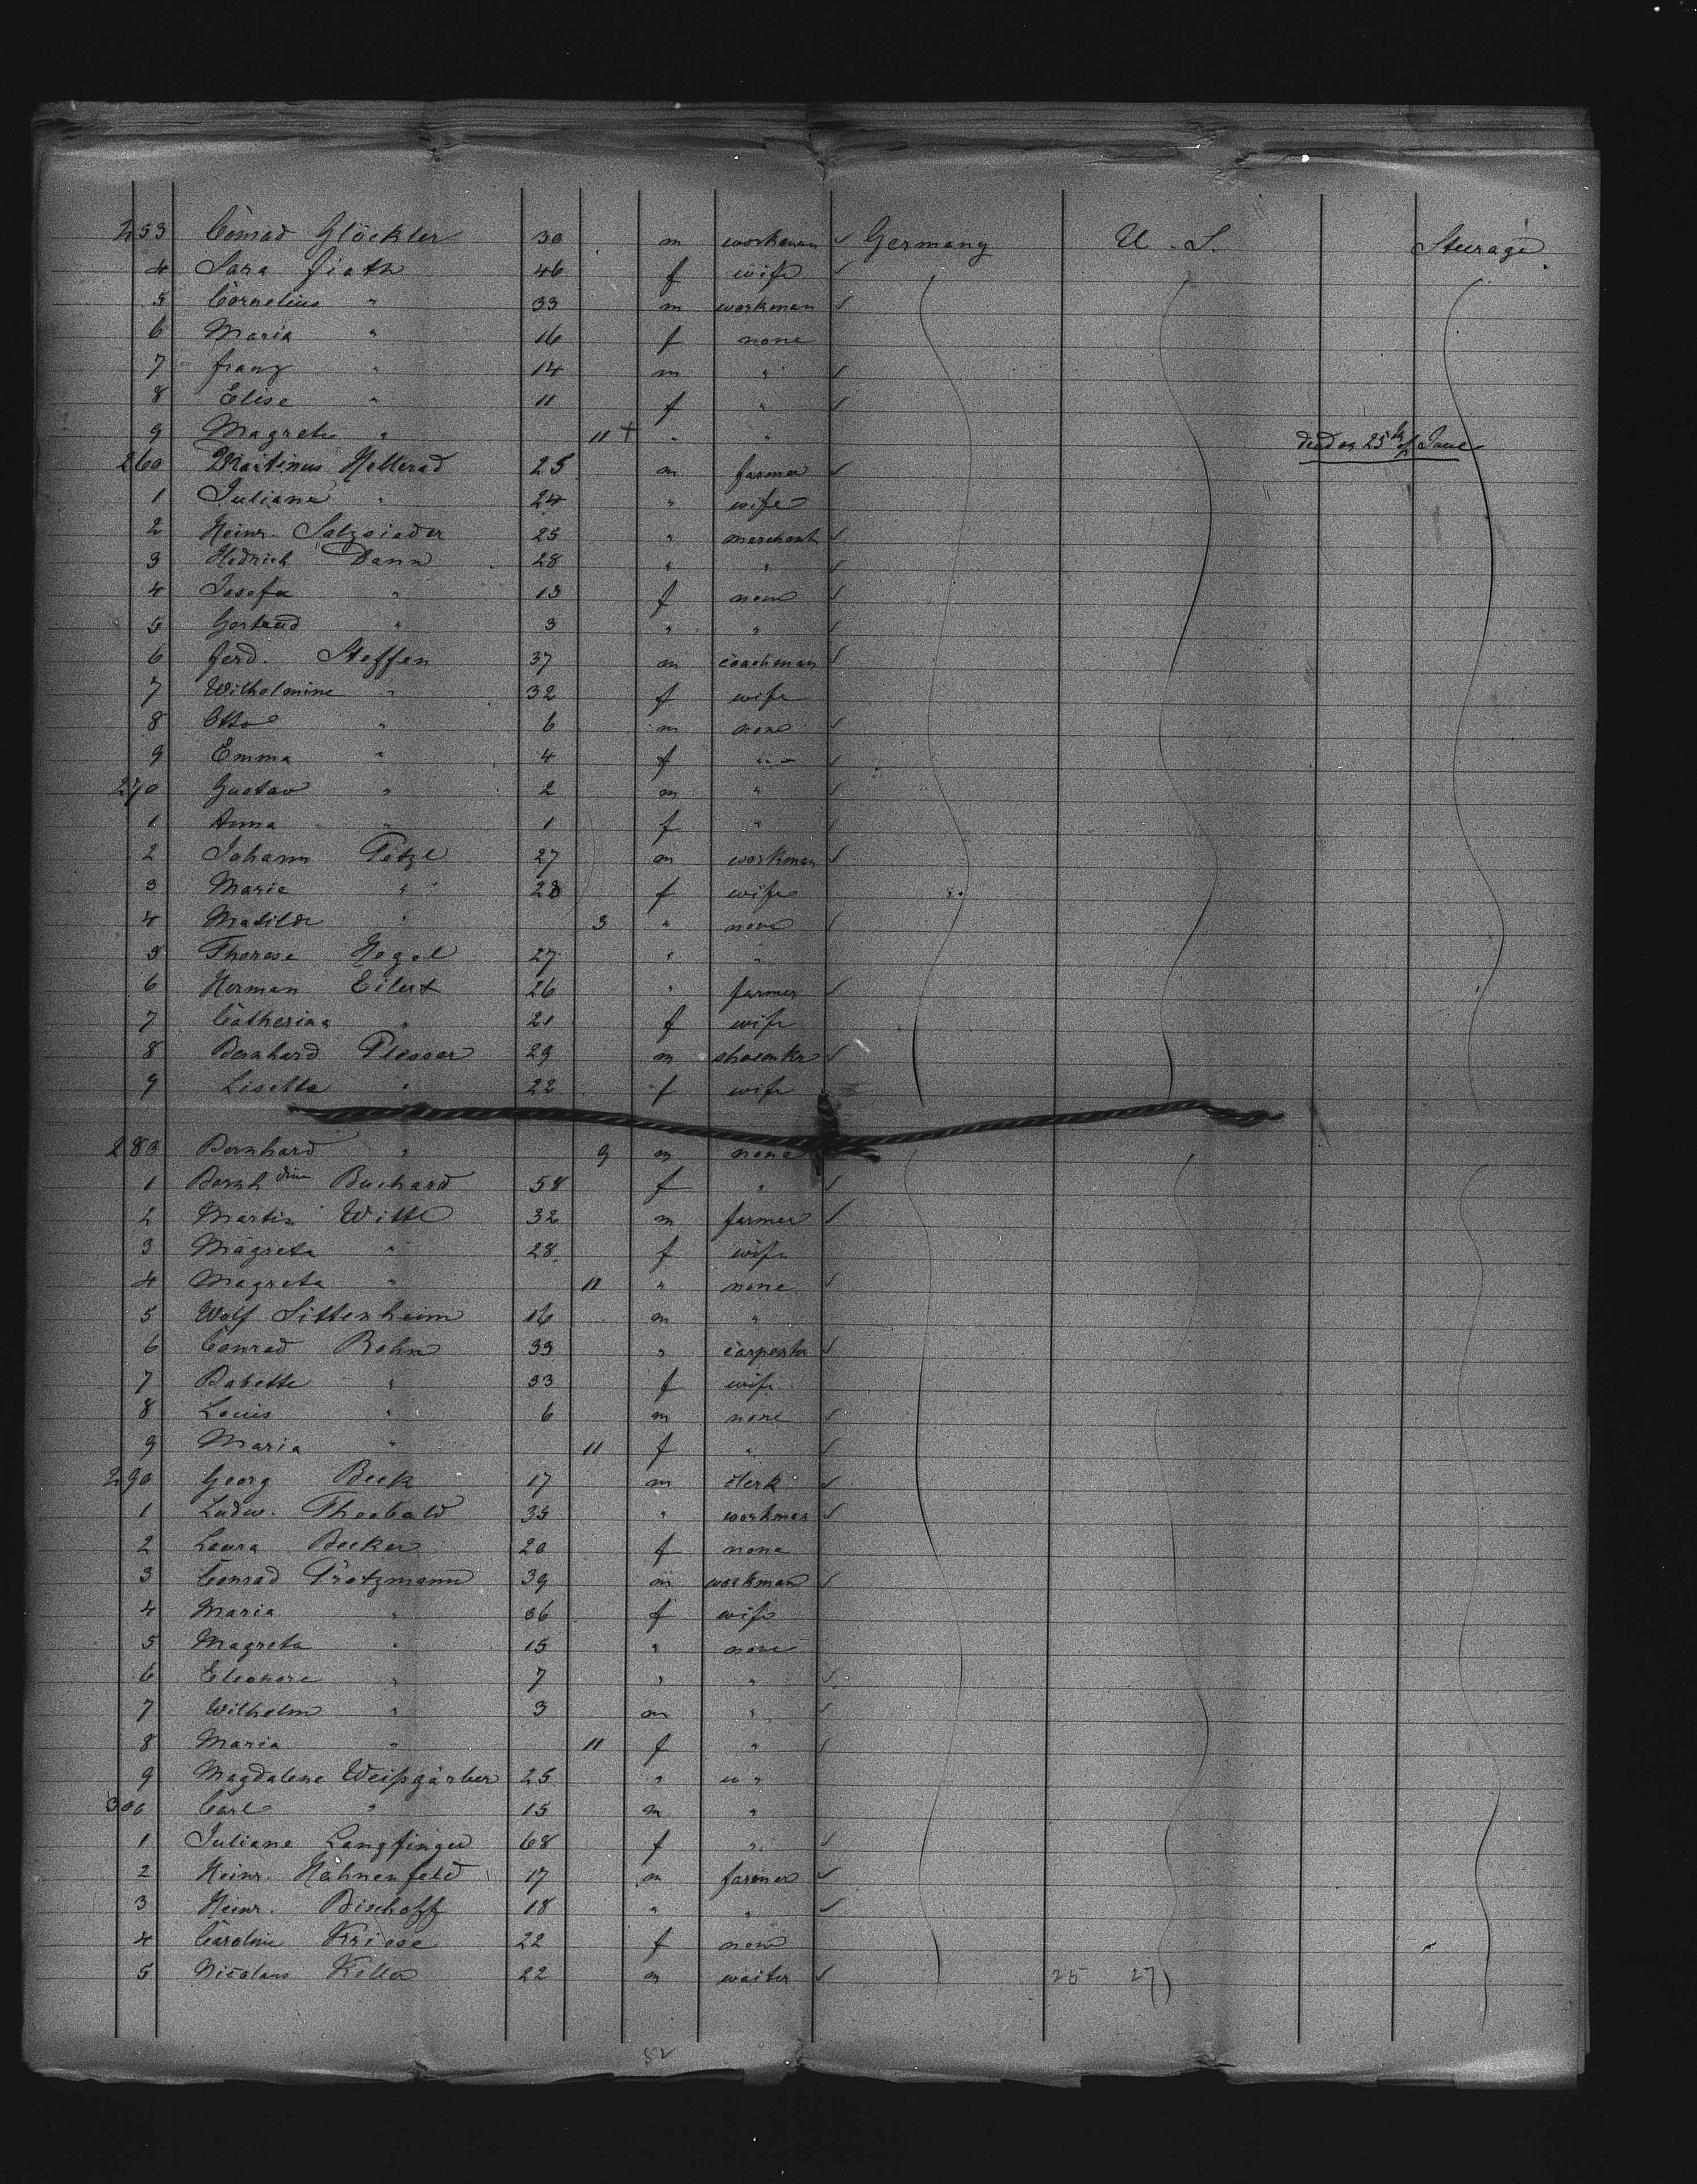 253 Conrad Glöckler 30 m workman ✓ Germany U. S. Steerage.
4 Sara 46 f wife ✓
5 Cornelius " 33 m workman ✓
6 Maria " 16 f none
7 Franz " 14 m " ✓
8 Elise " 11 f " ✓
9 Magreta " 11 + " " died on 25th of June
260 Martinus 25 m farmer ✓
1 Juliane " 24 " wife
2 Heinr. Salzsieder 25 " merchant ✓
3 Hedrich Dann 28 " " ✓
4 Josefa " 13 f none ✓
5 Gertrud " 3 " " ✓
6 Ferd. Steffen 37 m coachman ✓
7 Wilhelmine " 32 f wife
8 Otto " 6 m none ✓
9 Emma " 4 f " ✓
270 Gustav " 2 m " ✓
1 Anna " 1 f " ✓
2 Johann Petzl 27 m workman ✓
3 Marie " 28 f wife
4 Matilde " 3 " none ✓
5 Therese Hegel 27 " "
6 Herman Eilert 26 " farmer ✓
7 Catherina " 21 f wife
8 Bernhard Plessar 29 m ✓
9 Lisetta " 22 f wife
280 Bernhard " 9 m none
1 Bernhdine Buchard 58 f " ✓
2 Martin Witte 32 m farmer ✓
3 Magreta " 28 f wife
4 Magreta " 11 " none ✓
5 Wolf Sittenheim 16 m "
6 Conrad Bohn 33 " carpenter ✓
7 Babette " 33 f wife
8 Louis " 6 m none ✓
9 Maria " 11 f " ✓
290 Georg Beck 17 m clerk ✓
1 Ludw. Theobald 35 " workman ✓
2 Laura Becker 20 f none
3 Conrad Protzmann 39 m workman ✓
4 Maria " 36 f wife
5 Magreta " 15 " none
6 Eleonore " 7 " " ✓
7 Wilhelm " 3 m " ✓
8 Maria " 11 f " ✓
9 Magdalene Weißgärber 25 " "
300 Carl " 15 m "
1 Juliane Langfinger 68 f " ✓
2 Heinr. Hahnenfeld 17 m farmer ✓
3 Heinr. Bischoff 18 " " ✓
4 Caroline Kriese 22 f none
5 Nicolaus Keller 22 m waiter ✓ 25 27
52